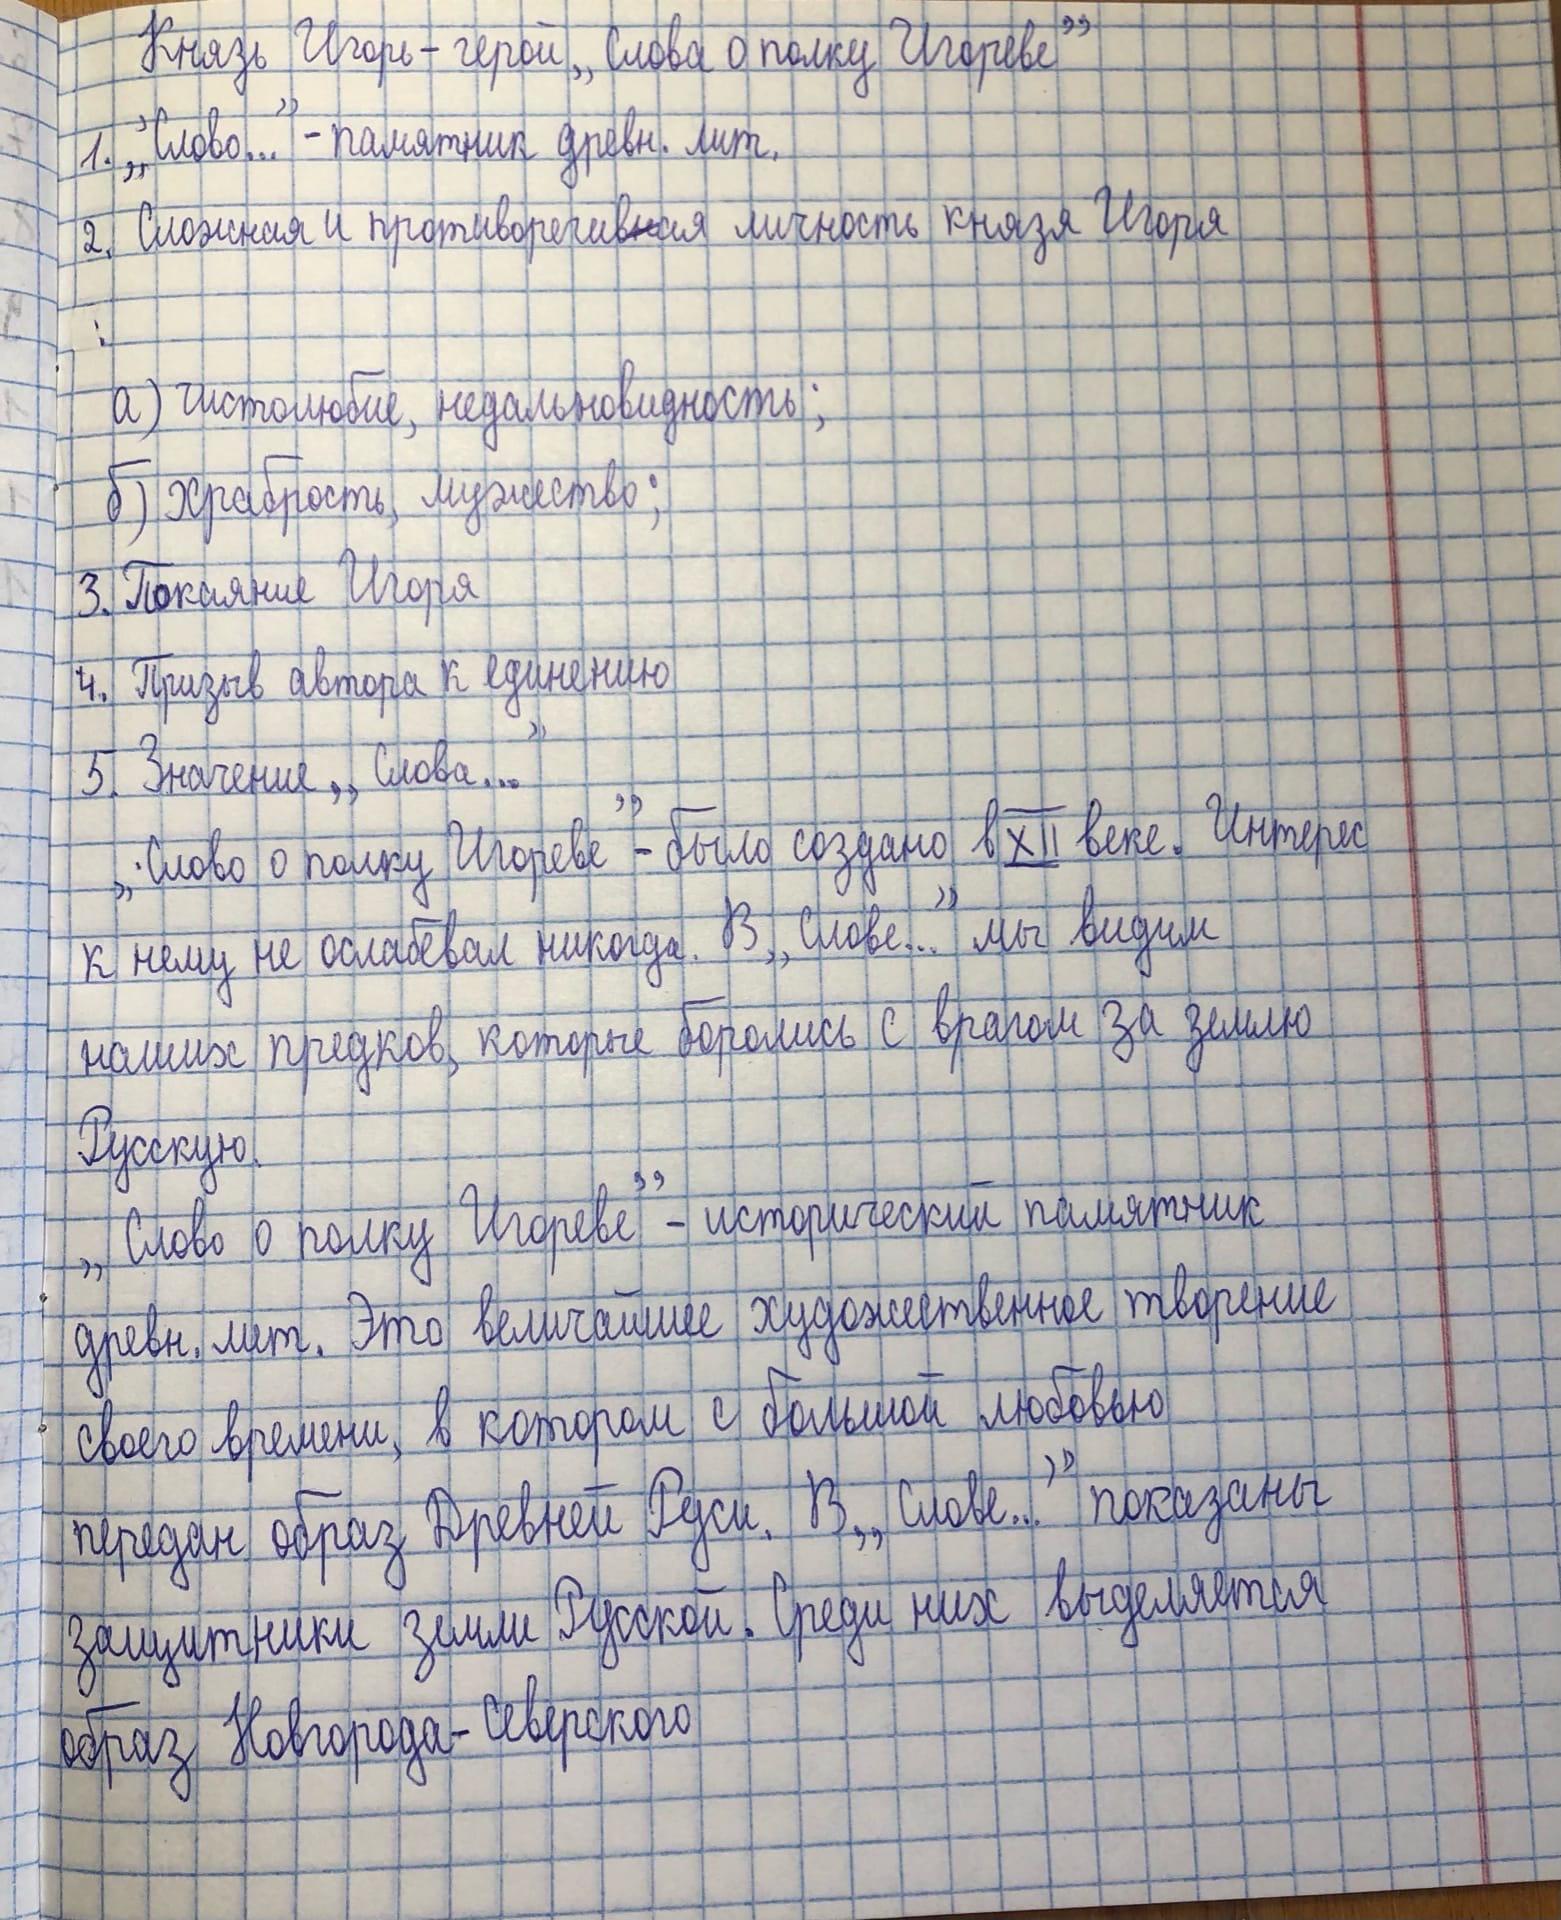 Князь Игорь - герой „Слова о полку Игореве”
1. „Слово...” - памятник древн. лит.
2. Сложная и противоречивая личность князя Игоря
а) чистолюбие, недальновидность;
б) храбрость, мужество;
3. Покаяние Игоря
4. Призыв автора к единению
5. Значение „Слова...”
„Слово о полку Игореве” - было создано в XII веке. Интерес
к нему не ослабевал никогда. В „Слове...” мы видим
наших предков, которые боролись с врагом за землю
Русскую.
„Слово о полку Игореве” - исторический памятник
древн. лит. Это величайшее художественное творение
своего времени, в котором с большой любовью
передан образ Древней Руси. В „Слове...” показаны
защитники земли Русской. Среди них выделяется
образ Новгорода-Северского